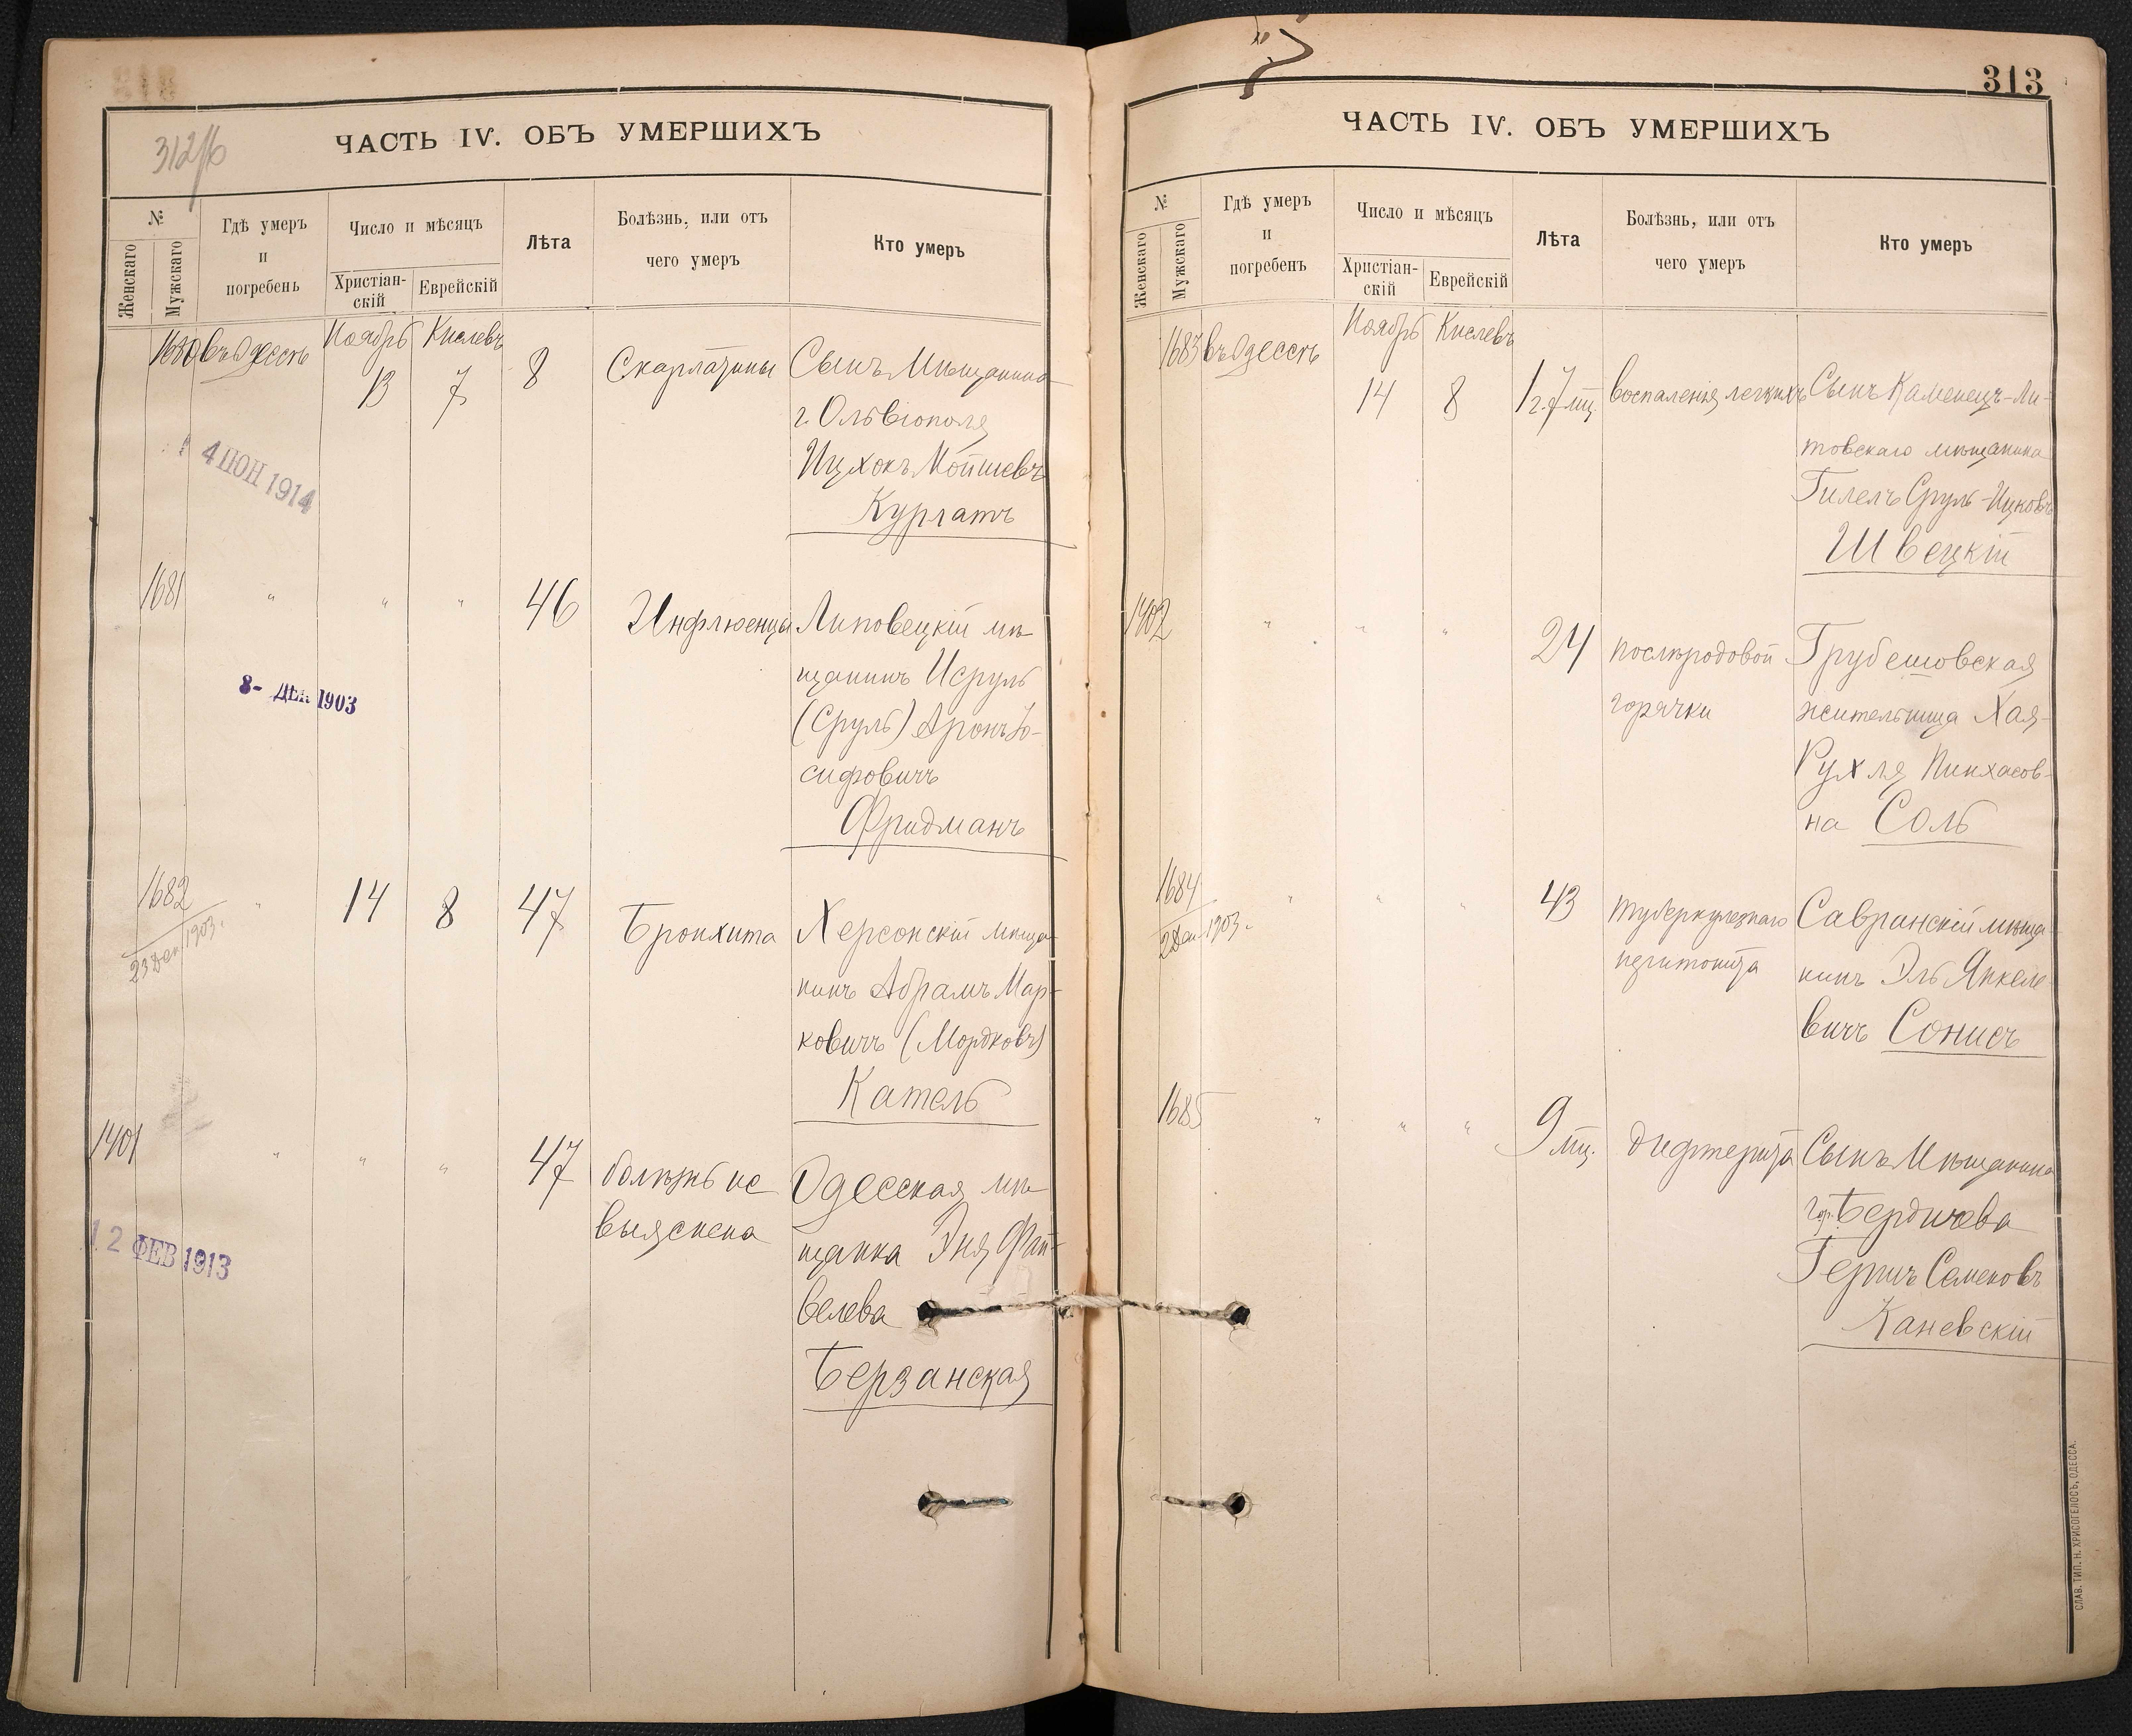 312/б
ЧАСТЬ IV. ОБЪ УМЕРШИХЪ
№
Женскаго
Мужскаго
Гдѣ умеръ
и
погребень
Число и мѣсяцъ
Христіан-
скій
Еврейскій
Лѣта
Болѣзнь, или отъ
чего умеръ
Кто умеръ
1680 въ Одессѣ Ноябрь Кислевъ
13 7 8 Скарлатины Сынъ Мѣщанина
г. Ольвіополя
Ицхокъ Мойшевъ
Кургатъ
4 ІЮН 1914
1681 " " " 46 Инфлюенцы Липовецкій мѣ-
щанинъ Исруль
(Сруль) Аронъ Іо-
сифовичъ
Фридманъ
8- ДЕК 1903
1682 " 14 8 47 Бронхита Херсонскій мѣща-
нинъ Абрамъ Мар-
ковичъ (Мордковъ)
Катель
23 Дек 1903.
1401 " " " 47 болѣзнь не Одесская мѣ-
выяснена щанка Эня Фай-
велева
Берзанская
12 ФЕВ 1913
313
ЧАСТЬ IV. ОБЪ УМЕРШИХЪ
№
Женскаго
Мужскаго
Гдѣ умеръ
и
погребенъ
Число и мѣсяцъ
Христіан-
скій
Еврейскій
Лѣта
Болѣзнь, или отъ
чего умеръ
Кто умеръ
1683 въ Одессѣ Ноябрь Кислевъ
14 8 1 г. 7 мц. воспаленія легкихъ Сынъ Каменецъ-Ли-
товскаго мѣщанина
Гилелъ Сруль-Ицковъ
Швецкій
1402 " " " 24 послѣродовой Грубешовская
горячки жительница Хая-
Рухля Пинхасов-
на Соль
1684 " " " 43 туберкулезнаго Савранскій мѣща-
перитонита нинъ Эль Янкеле-
вичъ Сонисъ
2 Дек 1903.
1685 " " " 9 мц. дифтерита Сынъ Мѣщанина
гор. Бердичева
Гершъ Семеновъ
Каневскій
СЛАВ. ТИП. Н. ХРИСОГЕЛОСЪ, ОДЕССА.